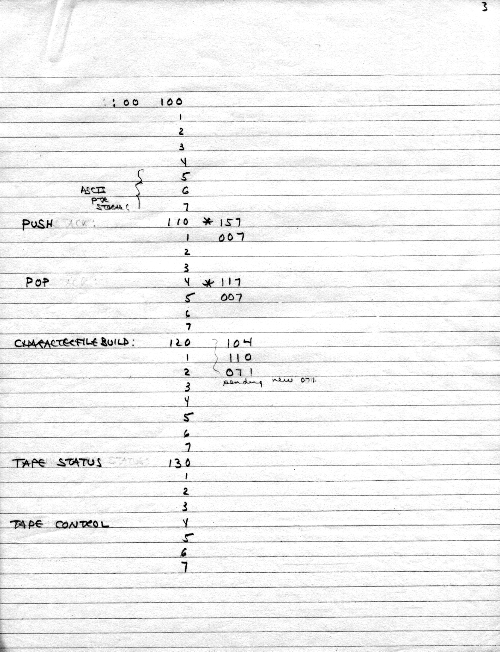 3
:00 100
1
2
3
4
5
ASCII 6
PTR
STACK: 7
PUSH 110 * 157
1 007
2
3
POP 4 * 117
5 007
6
7
CHARACTER FILE BUILD: 120 104
1 110
2 071
pending new 071
3
4
5
6
7
TAPE STATUS 130
1
2
3
TAPE CONTROL 4
5
6
7